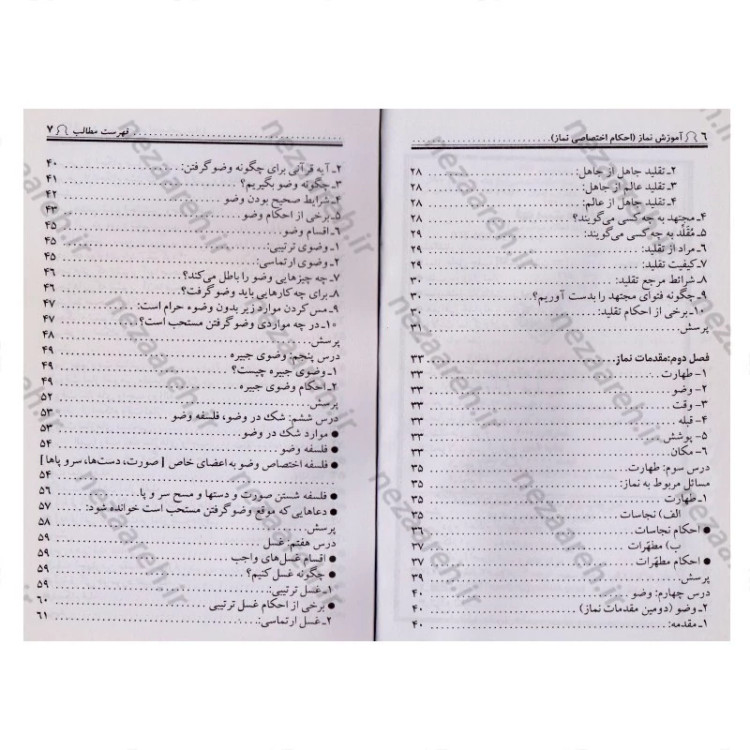 ۶ آموزش نماز (احکام اختصاصی نماز)
۲ـ تقلید جاهل از جاهل: ۲۸
۳ـ تقلید عالم از جاهل: ۲۸
۴ـ تقلید جاهل از عالم: ۲۸
۴ـ مجتهد به چه کسی می‌گویند؟ ۲۸
۵ـ مُقَلّد به چه کسی می‌گویند: ۲۹
۶ـ مراد از تقلید: ۲۹
۷ـ کیفیت تقلید: ۲۹
۸ـ شرائط مرجع تقلید: ۳۰
۹ـ چگونه فتوای مجتهد را بدست آوریم؟ ۳۰
۱۰ـ برخی از احکام تقلید: ۳۰
پرسش ۳۱
فصل دوم: مقدمات نماز ۳۳
۱- طهارت ۳۳
۲- وضو ۳۳
۳- وقت ۳۳
۴- قبله ۳۳
۵- پوشش ۳۳
۶- مکان ۳۳
درس سوم: طهارت ۳۵
مسائل مربوط به نماز: ۳۵
۱ـ طهارت ۳۵
الف) نجاسات ۳۵
● احکام نجاسات
ب) مطهّرات ۳۷
● احکام مطهّرات ۳۷
پرسش ۳۹
درس چهارم: وضو ۴۰
۲ـ وضو (دومین مقدمات نماز) ۴۰
۱ـ مقدمه: ۴۰
فهرست مطالب ۷
۲ـ آیه قرآنی برای چگونه وضو گرفتن: ۴۰
۳ـ چگونه وضو بگیریم؟ ۴۱
۴ـ شرایط صحیح بودن وضو ۴۲
۵ـ برخی از احکام وضو ۴۳
۶ـ اقسام وضو ۴۵
۱ـ وضوی ترتیبی: ۴۵
۲ـ وضوی ارتماسی: ۴۵
۷ـ چه چیزهایی وضو را باطل می‌کند؟ ۴۶
۸ـ برای چه کارهایی باید وضو گرفت؟ ۴۶
۹ـ مس کردن موارد زیر بدون وضوء حرام است: ۴۷
۱۰ـ در چه مواردی وضو گرفتن مستحب است؟ ۴۷
پرسش ۴۸
درس پنجم: وضوی جبیره ۴۹
۱ـ وضوی جبیره چیست؟ ۴۹
۲ـ احکام وضوی جبیره ۴۹
پرسش ۵۲
درس ششم: شک در وضو، فلسفه وضو ۵۳
● موارد شک در وضو ۵۳
● فلسفه وضو ۵۴
● فلسفه اختصاص وضو به اعضای خاص [صورت، دست‌ها، سر و پاها]
۵۴
● فلسفه شستن صورت و دستها و مسح سر و پا ۵۶
● دعاهایی که موقع وضو گرفتن مستحب است خوانده شود: ۵۷
پرسش ۵۸
درس هفتم: غسل ۵۹
● اقسام غسل‌های واجب ۵۹
● چگونه غسل کنیم؟ ۵۹
۱ـ غسل ترتیبی: ۵۹
● برخی از احکام غسل ترتیبی ۶۰
۲ـ غسل ارتماسی: ۶۱
nezaareh.ir